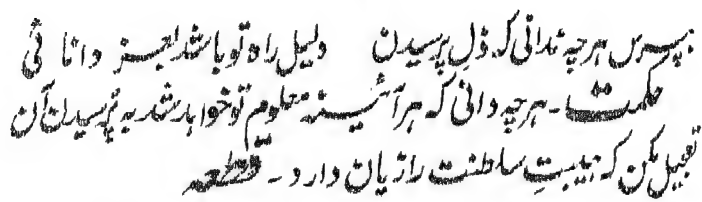 بپرس ہرچہ ندانی کہ ذل پرسیدن دلیل راہ تو باشد بعز دانائی
حکمت۔ ہرچہ دانی کہ ہر آئینہ معلوم تو خواہد شد بہ پرسیدن آن
تعجیل مکن کہ ہیبتِ سلطنت را زیان دارد۔ قطعہ